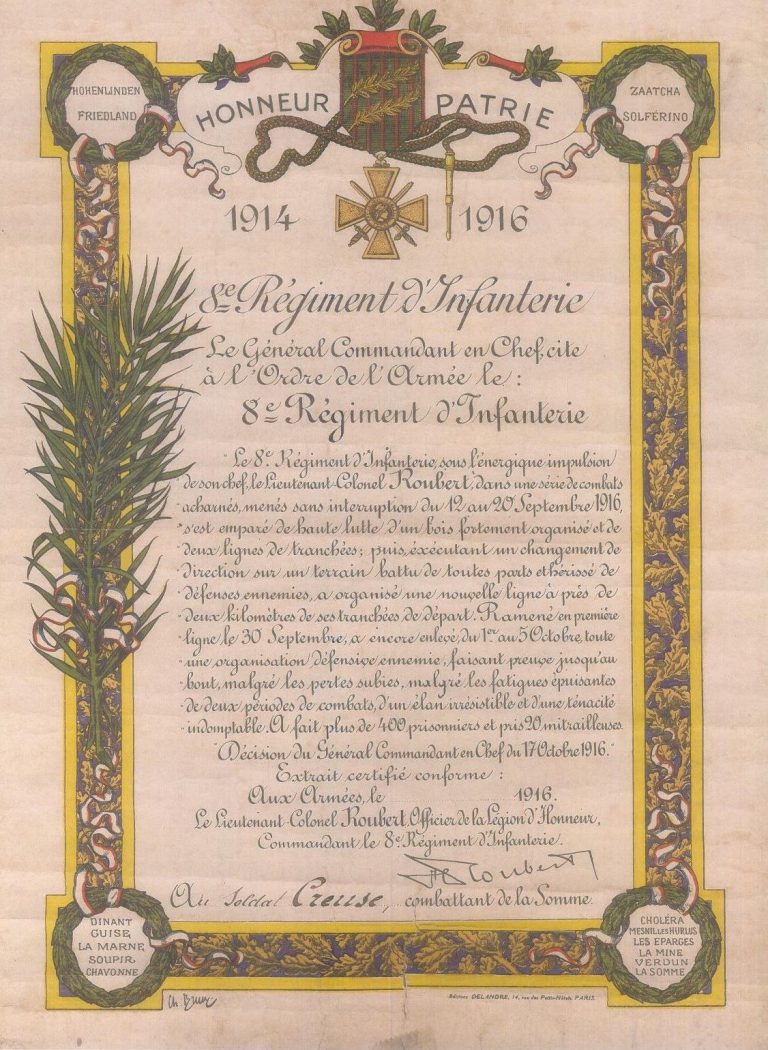 HOHENLINDEN
FRIEDLAND
HONNEUR PATRIE
ZAATCHA
SOLFÉRINO
1914 1916
8e Régiment d'Infanterie
Le Général Commandant en Chef, cite
à l'Ordre de l'Armée le :
8e Régiment d'Infanterie
"Le 8e Régiment d'Infanterie, sous l'énergique impulsion
"de son chef, le Lieutenant-Colonel Roubert, dans une série de combats
"acharnés, menés sans interruption du 12 au 20 Septembre 1916,
"s'est emparé de haute lutte d'un bois fortement organisé et de
"deux lignes de tranchées ; puis, éxécutant un changement de
"direction sur un terrain battu de toutes parts et hérissé de
"défenses ennemies, a organisé une nouvelle ligne à près de
"deux kilomètres de ses tranchées de départ. Ramené en première
"ligne le 30 Septembre, a encore enlevé, du 1er au 5 Octobre, toute
"une organisation défensive ennemie, faisant preuve jusqu'au
"bout, malgré les pertes subies, malgré les fatigues épuisantes
"de deux périodes de combats, d'un élan irrésistible et d'une ténacité
"indomptable. A fait plus de 400 prisonniers et pris 20 mitrailleuses.
"Décision du Général Commandant en Chef du 17 Octobre 1916."
Extrait certifié conforme :
Aux Armées, le 1916.
Le Lieutenant-Colonel Roubert, Officier de la Légion d'Honneur,
Commandant le 8e Régiment d'Infanterie.
Roubert
Au Soldat Creuse, combattant de la Somme.
DINANT
GUISE,
LA MARNE,
SOUPIR,
CHAVONNE
CHOLÉRA
MESNIL LES HURLUS
LES EPARGES
LA MINE
VERDUN
LA SOMME
Editions DELANDRE, 14, rue des Petits-Hôtels, PARIS